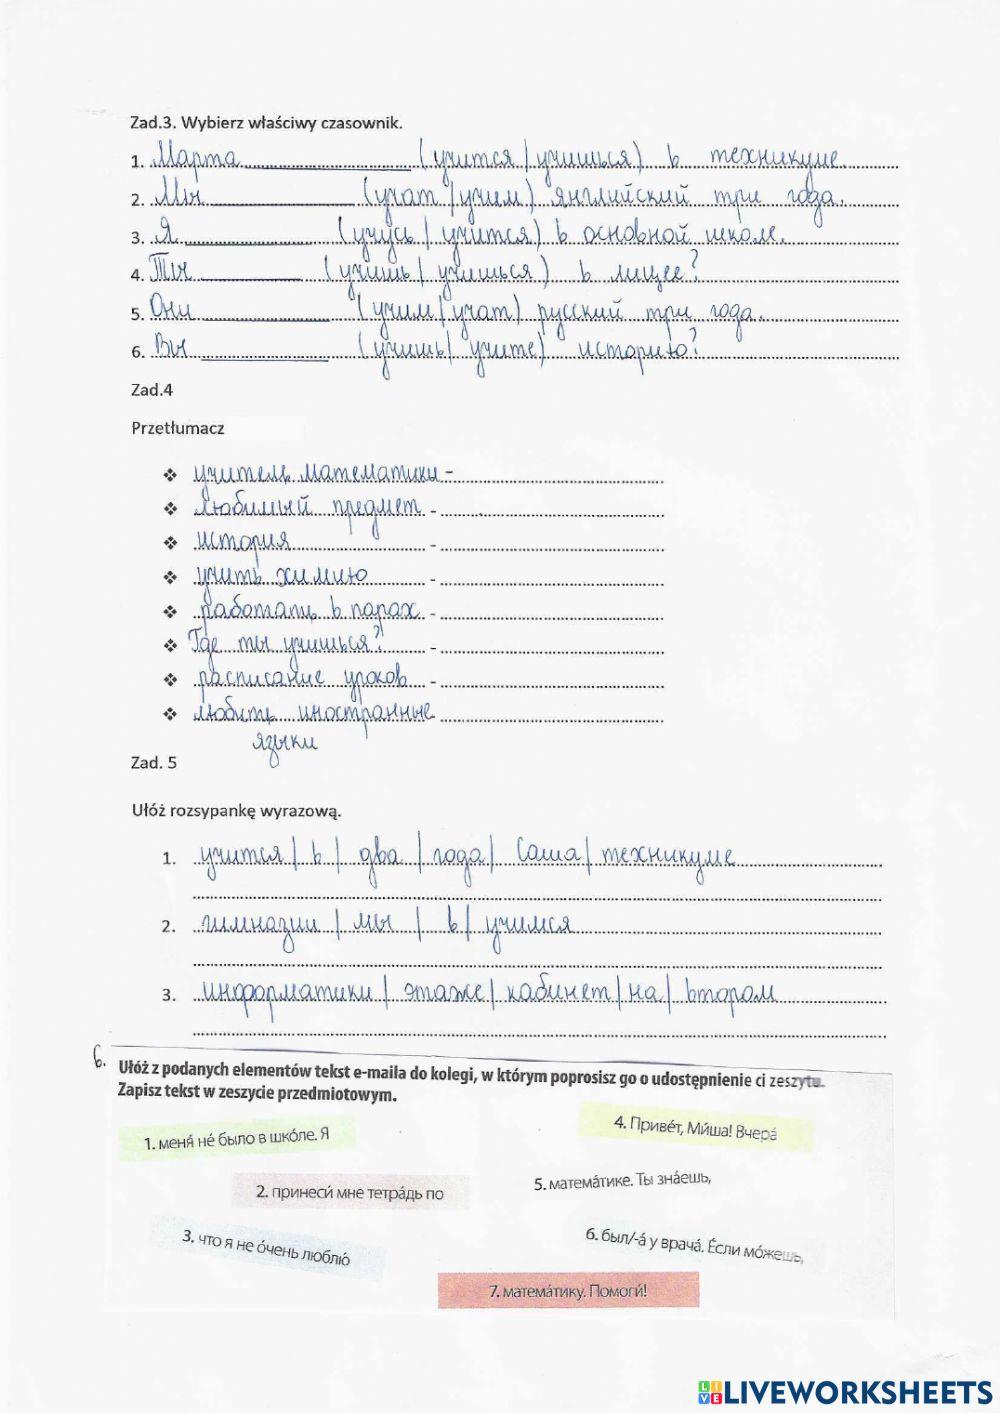 Zad.3. Wybierz właściwy czasownik.
1. Марта ____________ (учится | учишься) в техникуме.
2. Мы ____________ (учат | учим) английский три года.
3. Я ____________ (учусь | учится) в основной школе.
4. Ты ____________ (учишь | учишься) в лицее?
5. Они ____________ (учим | учат) русский три года.
6. Вы ____________ (учишь | учите) историю?
Zad.4
Przetłumacz
❖ учитель математики -
❖ любимый предмет -
❖ история -
❖ учить химию -
❖ работать в парах -
❖ Где ты учишься? -
❖ расписание уроков -
❖ любить иностранные
языки
Zad. 5
Ułóż rozsypankę wyrazową.
1. учится | в | два | года | Саша | техникуме
2. гимназии | мы | в | учимся
3. информатики | этаже | кабинет | на | втором
6. Ułóż z podanych elementów tekst e-maila do kolegi, w którym poprosisz go o udostępnienie ci zeszytu.
Zapisz tekst w zeszycie przedmiotowym.
1. меня́ не́ было в шко́ле. Я
4. Приве́т, Ми́ша! Вчера́
2. принеси́ мне тетра́дь по
5. матема́тике. Ты зна́ешь,
3. что я не о́чень люблю́
6. был/-а́ у врача́. Е́сли мо́жешь,
7. матема́тику. Помоги́!
LIVEWORKSHEETS